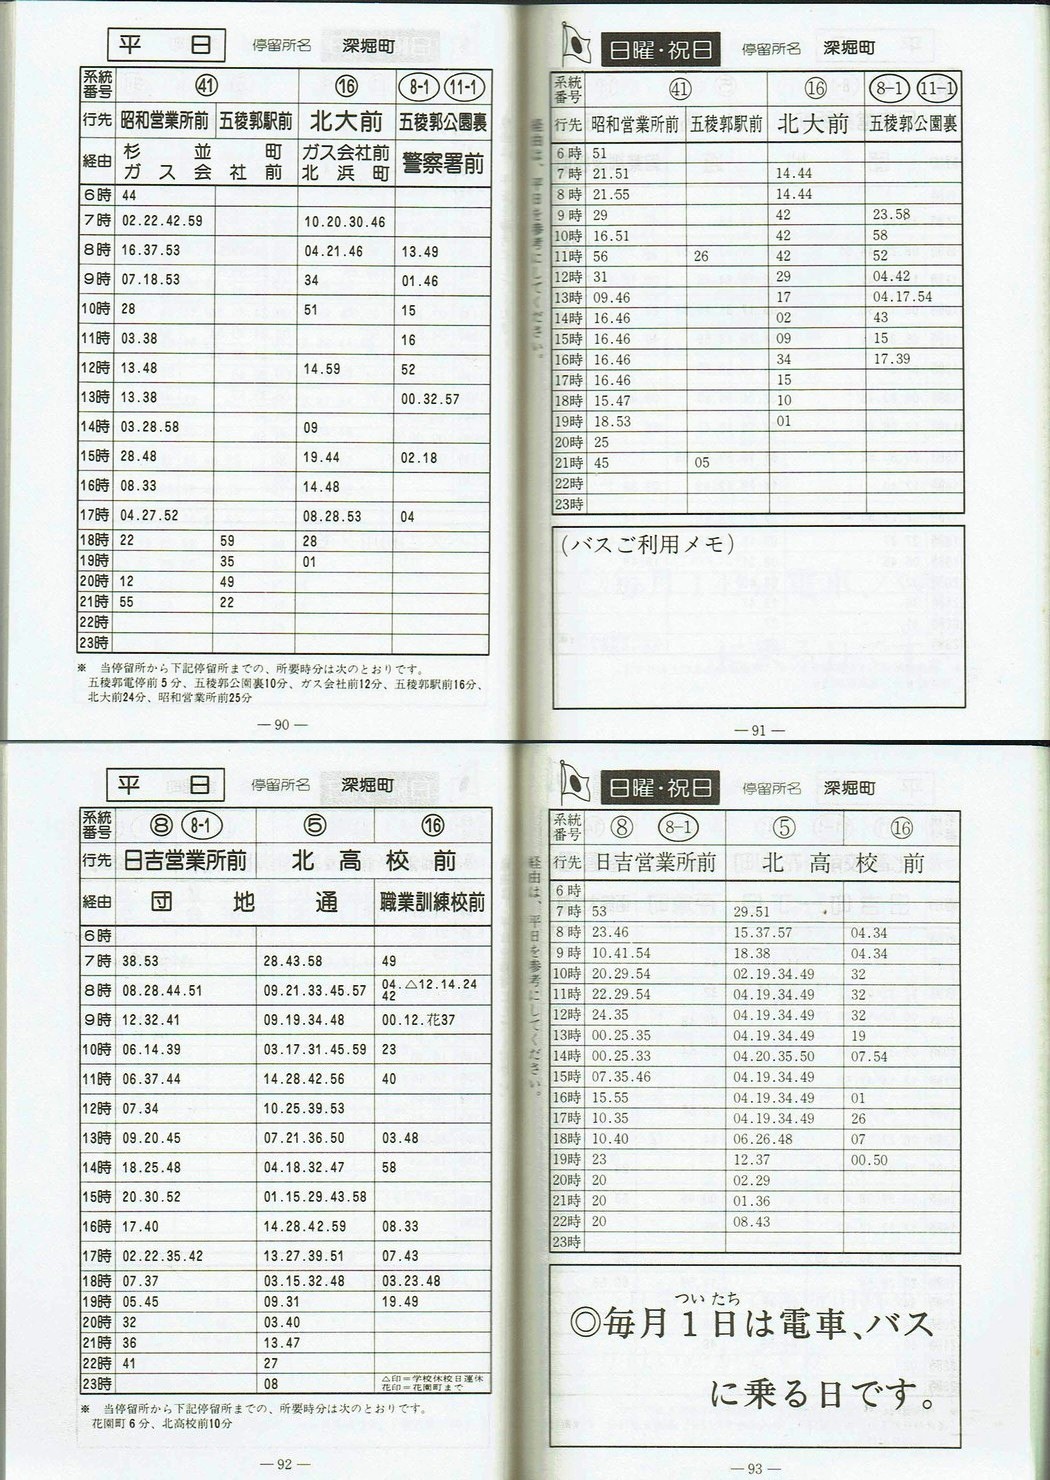 平 日 停留所名 深堀町
系統番号 ㊶ ⑯ 8-1 11-1
行先 昭和営業所前 五稜郭駅前 北大前 五稜郭公園裏
経由 杉並町 ガス会社前 ガス会社前 北浜町 警察署前
6時 44
7時 02.22.42.59 10.20.30.46
8時 16.37.53 04.21.46 13.49
9時 07.18.53 34 01.46
10時 28 51 15
11時 03.38 16
12時 13.48 14.59 52
13時 13.38 00.32.57
14時 03.28.58 09
15時 28.48 19.44 02.18
16時 08.33 14.48
17時 04.27.52 08.28.53 04
18時 22 59 28
19時 35 01
20時 12 49
21時 55 22
22時
23時
※ 当停留所から下記停留所までの、所要時分は次のとおりです。
五稜郭電停前5分、五稜郭公園裏10分、ガス会社前12分、五稜郭駅前16分、
北大前24分、昭和営業所前25分
—90—
日曜・祝日 停留所名 深堀町
系統番号 ㊶ ⑯ 8-1 11-1
行先 昭和営業所前 五稜郭駅前 北大前 五稜郭公園裏
6時 51
7時 21.51 14.44
8時 21.55 14.44
9時 29 42 23.58
10時 16.51 42 58
11時 56 26 42 52
12時 31 29 04.42
13時 09.46 17 04.17.54
14時 16.46 02 43
15時 16.46 09 15
16時 16.46 34 17.39
17時 16.46 15
18時 15.47 10
19時 18.53 01
20時 25
21時 45 05
22時
23時
経由は、平日を参考にしてください。
(バスご利用メモ)
—91—
平 日 停留所名 深堀町
系統番号 ⑧ 8-1 ⑤ ⑯
行先 日吉営業所前 北高校前
経由 団地通 職業訓練校前
6時
7時 38.53 28.43.58 49
8時 08.28.44.51 09.21.33.45.57 04.△12.14.24 42
9時 12.32.41 09.19.34.48 00.12.花37
10時 06.14.39 03.17.31.45.59 23
11時 06.37.44 14.28.42.56 40
12時 07.34 10.25.39.53
13時 09.20.45 07.21.36.50 03.48
14時 18.25.48 04.18.32.47 58
15時 20.30.52 01.15.29.43.58
16時 17.40 14.28.42.59 08.33
17時 02.22.35.42 13.27.39.51 07.43
18時 07.37 03.15.32.48 03.23.48
19時 05.45 09.31 19.49
20時 32 03.40
21時 36 13.47
22時 41 27
23時 08 △印=学校休校日運休
花印=花園町まで
※ 当停留所から下記停留所までの、所要時分は次のとおりです。
花園町6分、北高校前10分
—92—
日曜・祝日 停留所名 深堀町
系統番号 ⑧ 8-1 ⑤ ⑯
行先 日吉営業所前 北高校前
6時
7時 53 29.51
8時 23.46 15.37.57 04.34
9時 10.41.54 18.38 04.34
10時 20.29.54 02.19.34.49 32
11時 22.29.54 04.19.34.49 32
12時 24.35 04.19.34.49 32
13時 00.25.35 04.19.34.49 19
14時 00.25.33 04.20.35.50 07.54
15時 07.35.46 04.19.34.49
16時 15.55 04.19.34.49 01
17時 10.35 04.19.34.49 26
18時 10.40 06.26.48 07
19時 23 12.37 00.50
20時 20 02.29
21時 20 01.36
22時 20 08.43
23時
経由は、平日を参考にしてください。
ついたち
◎毎月1日は電車、バス
に乗る日です。
—93—